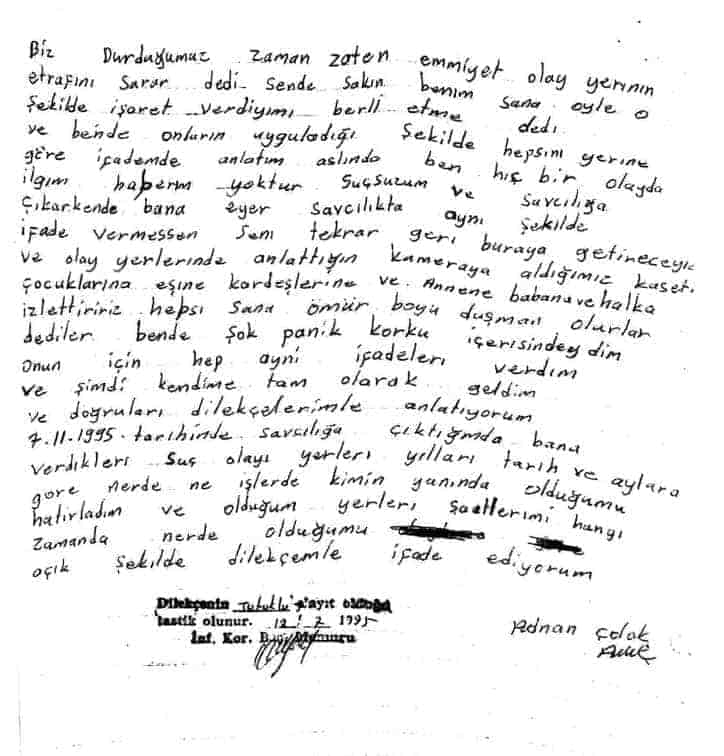 Biz Durduğumuz zaman zaten emmiyet olay yerının
etrafını sarar dedi sende sakın benim sana öyle o
Şekilde işaret verdiyımı berlı etme dedı
ve bende onların uyguladığı Şekilde hepsını yerıne
göre ifademde anlatım aslında ben hıç bir olayda
ilgım haberım yoktur Suçsuzum ve Savcılığa
Çıkarkende bana eyer Savcılıkta aynı Şekilde
ifade vermessen Senı tekrar gerı buraya getireceyiz
ve olay yerlerınde anlattığın kameraya aldığımız kasetı
çocuklarına eşıne kardeşlerıne ve Annene babana ve halka
izlettiririz hepsı Sana ömür boyu duşman olurlar
dediler bende Şok panik korku içerisindeydim
Onun için hep aynı ifadelerı verdım
ve şimdi kendime tam olarak geldim
ve doğruları dilekçelerımle anlatıyorum
7.11-1995-tarihınde Savcılığa çıktığımda bana
verdıklerı Suç olayı yerlerı yılları tarih ve aylara
gore nerde ne işlerde kimin yanında olduğumu
hatırladım ve olduğum yerlerı Saatlerımı hangı
Zamanda nerde olduğumu
açık Şekılde dilekçemle ifade ediyorum
Dilekçenin Tutuklu'ya ait olduğu
tastik olunur. 12/ 7 1995
İnf. Kor. Baş Memuru
Adnan Çolak